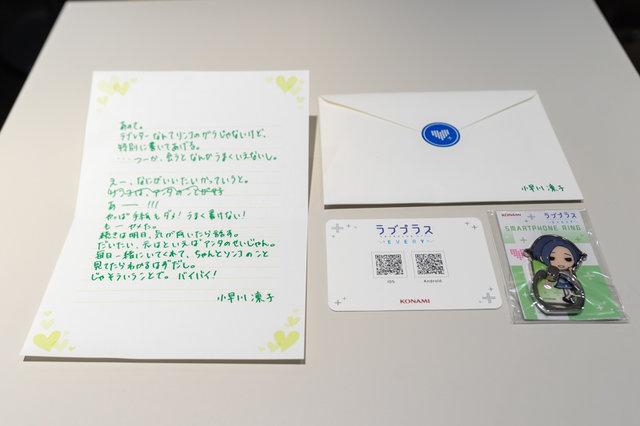 あのさ。
ラブレターなんてリンコのガラじゃないけど、
特別に書いてあげる。
・・・つーか、会うとなんかうまくいえないし。
えー、なにがいいたいかっていうと。
リンコは、アンタのことが好
あ ーー !!!
やっぱ手紙もダメ!うまく書けない!
もー やめた。
続きは明日、気が向いたら話す。
だいたい、元はといえばアンタのせいじゃん。
毎日一緒にいてくれて、ちゃんとリンコのこと
見てたらわかるはずだし。
じゃそういうことで。バイバイ!
小早川 凛子
小早川 凛子
ラブプラス
EVERY
iOS
Android
KONAMI
KONAMI
ラブプラス
EVERY
SMARTPHONE RING